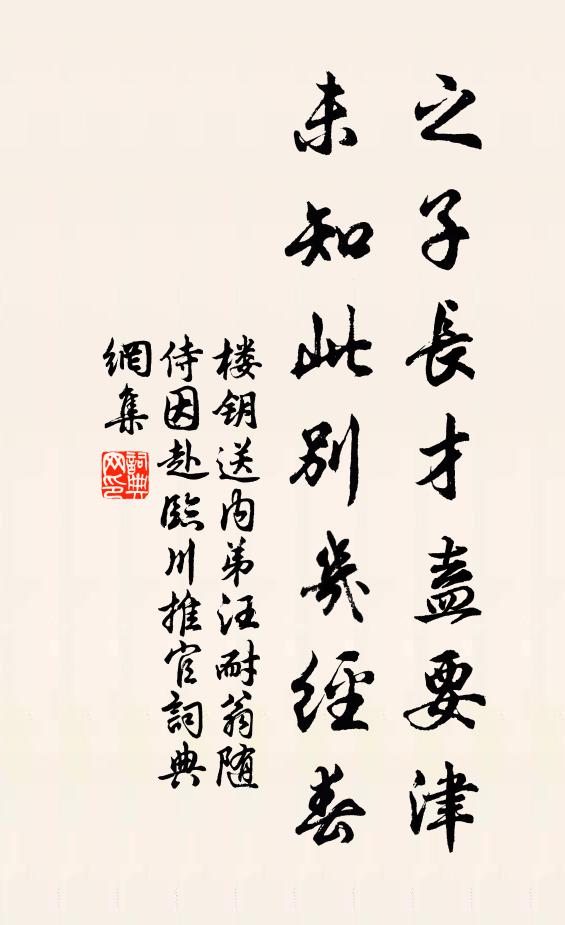 之子長才盍要津
未知此別幾經春
楼钥送内弟汪耐翁随
侍因赴臨川推官詞典
網集
詞典
网印